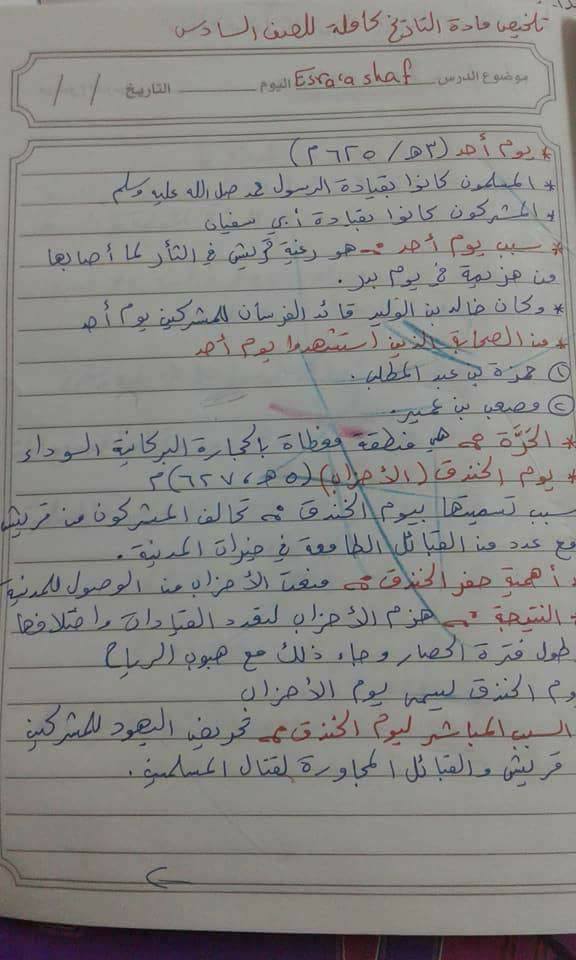 تلخيص مادة التاريخ كاملة للصف السادس
موضوع الدرس Esra'a shaf اليوم التاريخ / /
* يوم أحد (٣ هـ / ٦٢٥ م)
* المسلمون كانوا بقيادة الرسول محمد صل الله عليه وسلم
* المشركون كانوا بقيادة أبي سفيان
* سبب يوم أحد ⇐ هو رغبة قريش في الثأر لما أصابها
من هزيمة في يوم بدر.
* وكان خالد بن الوليد قائد الفرسان للمشركين يوم أحد
* من الصحابة الذين استشهدوا يوم أحد
① حمزة بن عبد المطلب.
② مصعب بن عمير.
* الحَرَّة ⇐ هي منطقة مغطاة بالحجارة البركانية السوداء
* يوم الخندق (الأحزاب) (٥ هـ، ٦٢٧) م
سبب تسميتها بيوم الخندق ⇐ تحالف المشركون من قريش
مع عدد من القبائل الطامعة في خيرات المدينة.
* أهمية حفر الخندق ⇐ منعت الأحزاب من الوصول للمدينة
* النتيجة ⇐ هزم الأحزاب لتعدد القيادات واختلافها
طول فترة الحصار وجاء ذلك مع هبوب الرياح
يوم الخندق ليسمى يوم الأحزاب
السبب المباشر ليوم الخندق ⇐ تحريض اليهود للمشركين
قريش والقبائل المجاورة لقتال المسلمين.